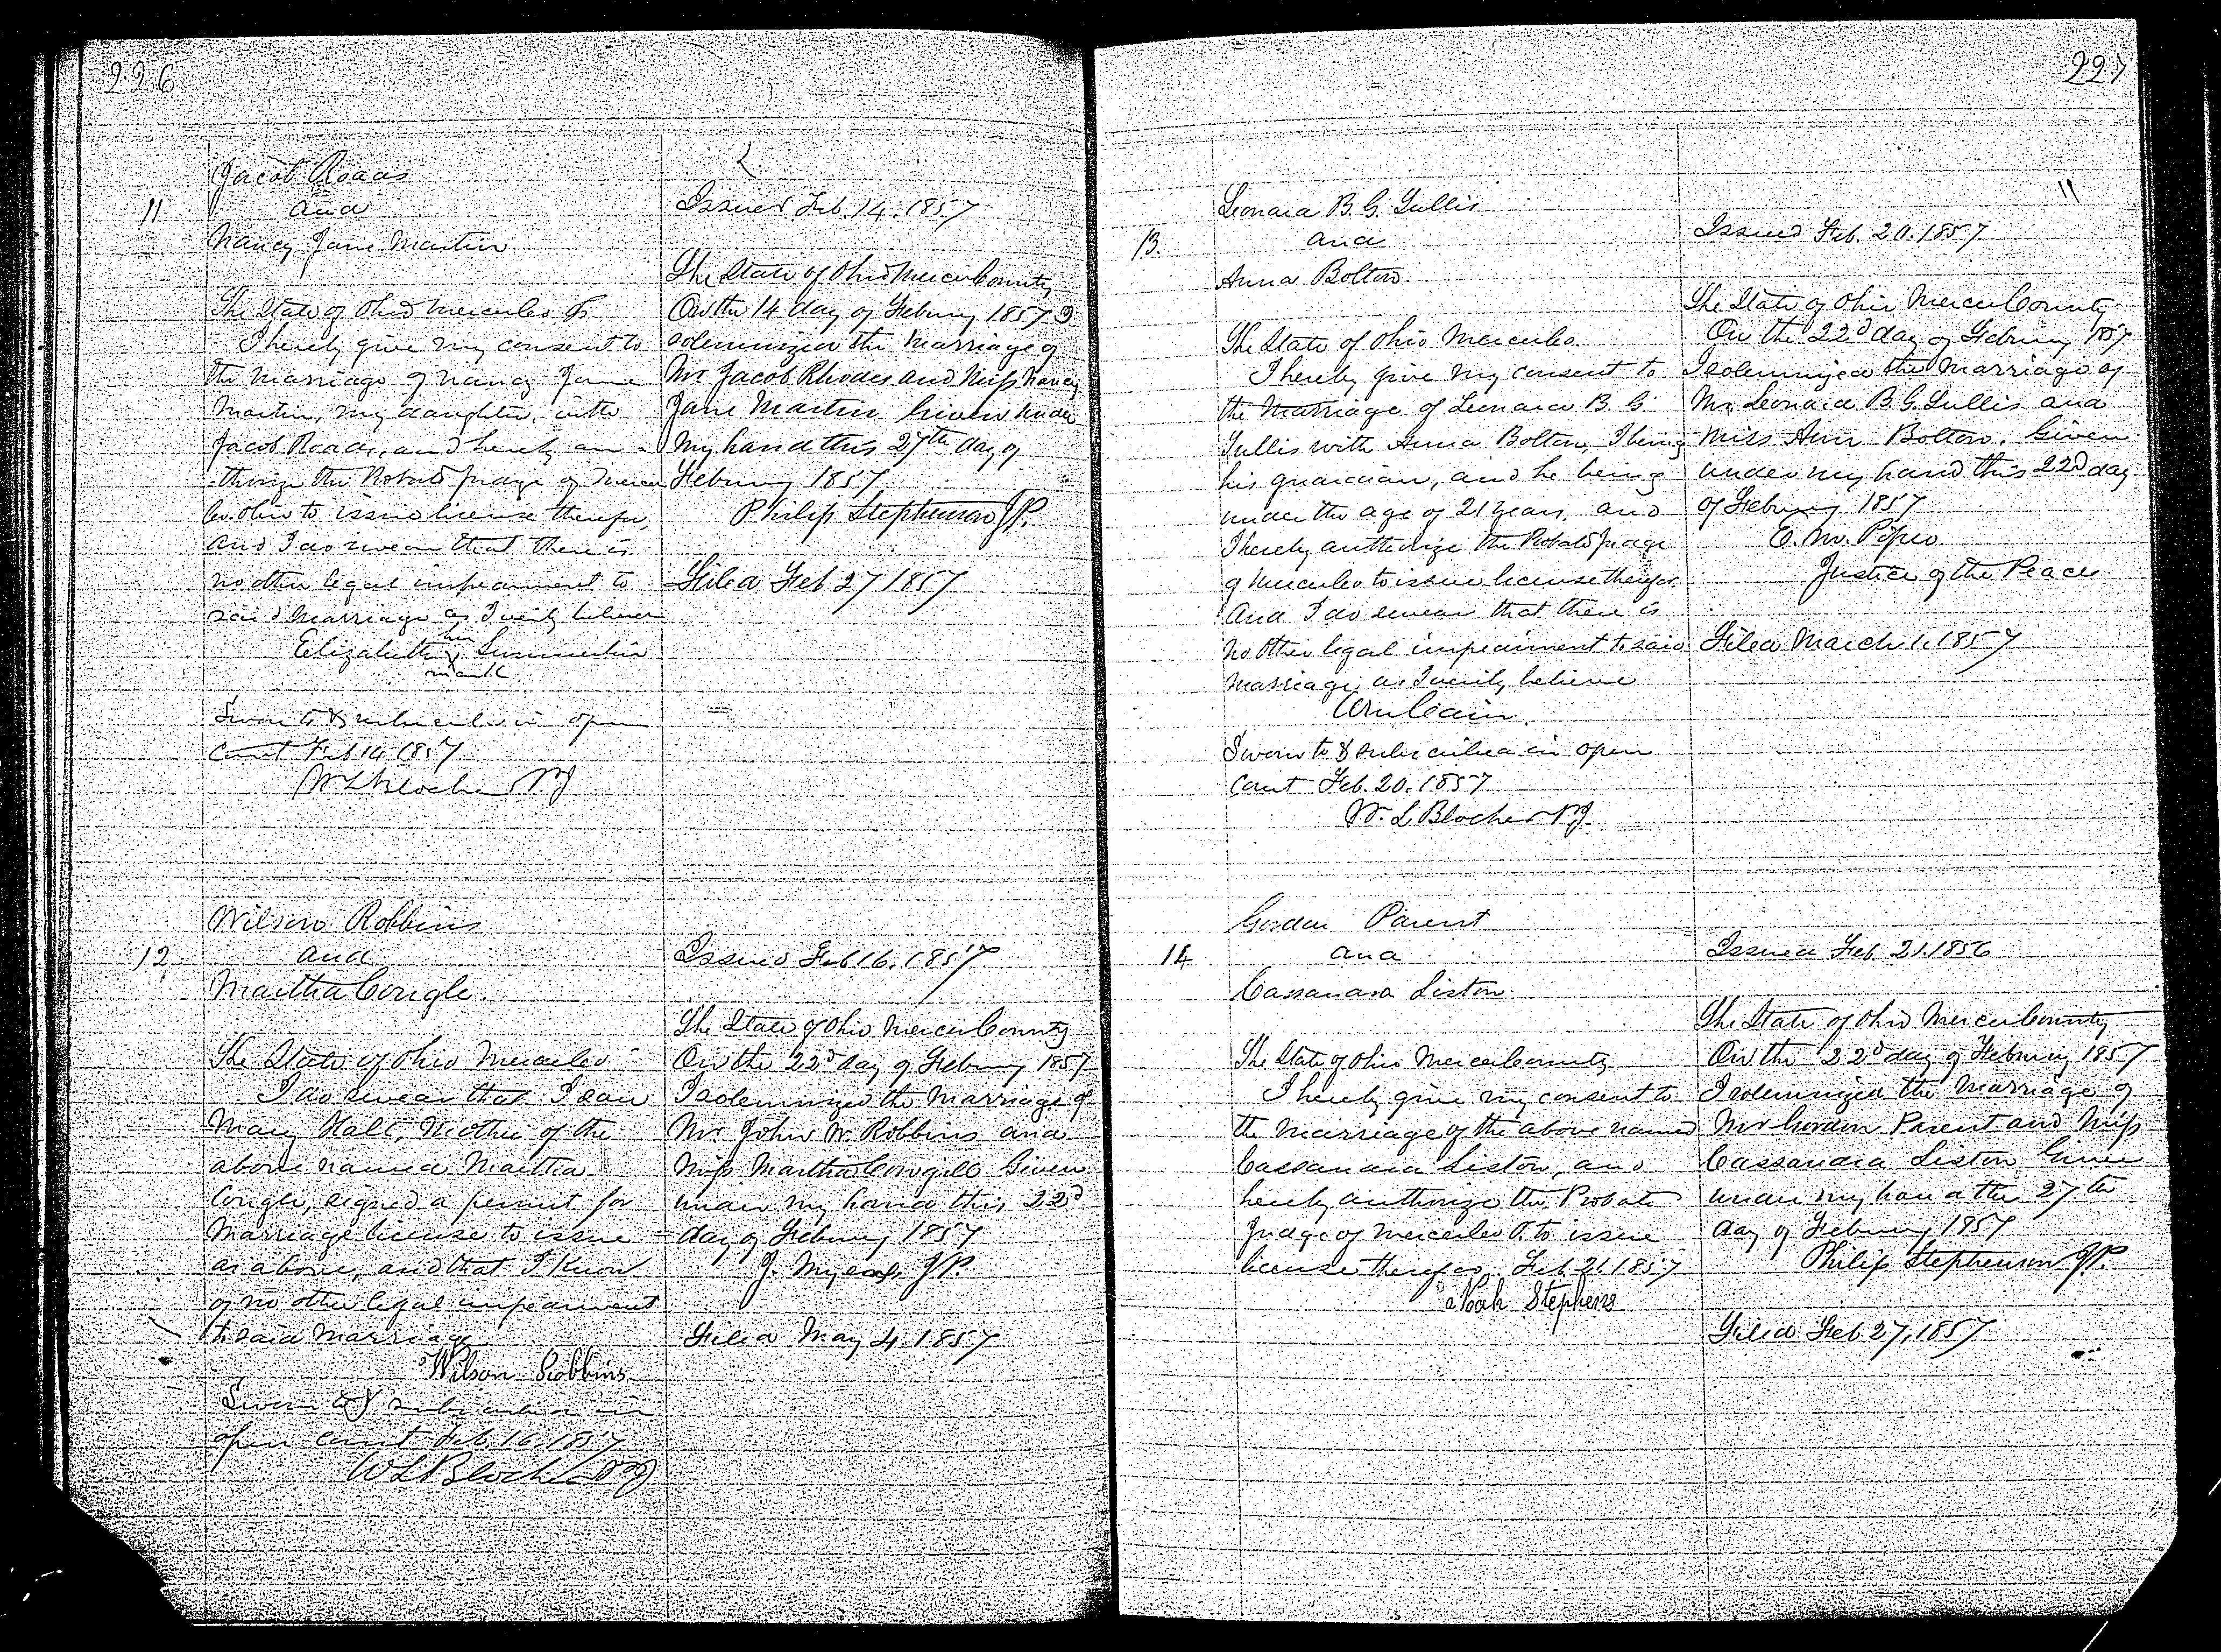 226
Jacob Roads
11 and
Nancy Jane Martin
The State of Ohio Mercer Co Ss
I hereby give my consent to
the marriage of Nancy Jane
Martin, my daughter, with
Jacob Roads, and hereby au-
-thorize the Probate Judge of Mercer
Co. Ohio to issue license therefor,
and I do swear that there is
no other legal impeariment to
said marriage as I verily believe
her
Elizabeth X
mark
Sworn to & subscribed in open
Court Feb 14 1857
W L Blocher PJ
Issued Feb. 14. 1857
The State of Ohio Mercer County
On the 14 day of Febury 1857 I
solemnized the Marriage of
Mr Jacob Rhodes and Miss Nancy
Jane Martin Given under
my hand this 27th day of
Febury 1857
Philip Stephenson JP.
Filed Feb 27 1857
Wilson Robbins
12 and
Martha Congle
The State of Ohio Mercer Co
I do swear that I saw
Mary Hall, Mother of the
above named Martha
Congle, signed a permit for
Marriage license to issue
as above, and that I know
of no other legal impeariment
to said marriage
Wilson Robbins
Sworn to & subscribed in
open court Feb. 16. 1857
W L Blocher PJ
Issued Feb 16. 1857
The State of Ohio Mercer County
On the 22d day of Febury 1857
I solemnized the Marriage of
Mr John W. Robbins and
Miss Martha Cowgill Given
under my hand this 22d
day of Febury 1857
J. JP.
Filed May 4 1857
227
11
Leonard B. G. Tullis
13. and
Anna Bolton
The State of Ohio Mercer Co.
I hereby give my consent to
the Marriage of Leonard B. G.
Tullis with Anna Bolton, I being
his guardian, and he being
under the age of 21 years, and
I hereby authorize the Probate Judge
of Mercer Co to issue license therefor
And I do swear that there is
no other legal impeariment to said
marriage as I verily believe
Wm Cain.
Sworn to & subscribed in open
Court Feb. 20. 1857
W. L Blocher PJ.
Issued Feb. 20. 1857.
The State of Ohio Mercer County
On the 22d day of Febury 1857
I solemnized the Marriage of
Mr. Leonard B. G. Tullis and
Miss Ann Bolton. Given
under my hand this 22d day
of Febury 1857
Justice of the Peace
Filed March 1. 1857
Gordon Parent
14 and
Cassandra Liston
The State of Ohio Mercer County
I hereby give my consent to
the Marriage of the above named
Cassandra Liston, and
hereby authorize the Probate
Judge of Mercer Co O. to issue
license therefor. Feb. 21. 1857
Noah Stephens
Issued Feb. 21. 1856
The State of Ohio Mercer County
On the 22d day of Febury 1857
I solemnized the Marriage of
Mr Gordon Parent and Miss
Cassandra Liston Given
under my hand the 27th
day of Febury 1857
Philip Stephenson JP.
Filed Feb 27, 1857